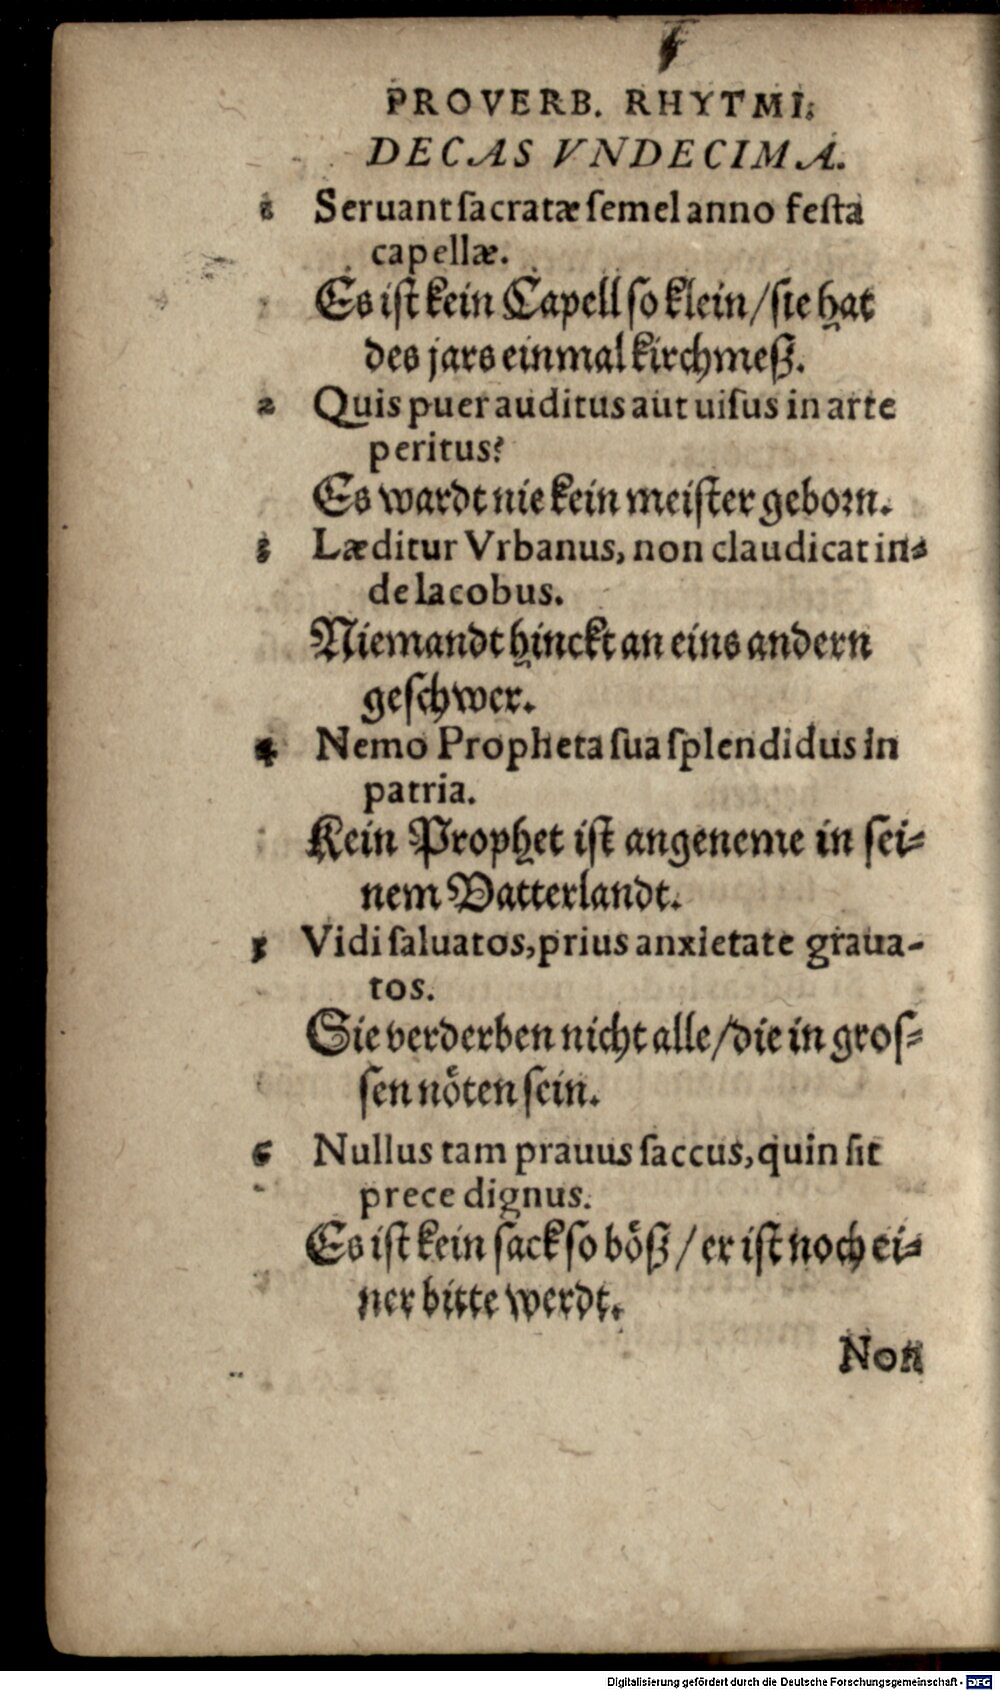 PROVERB. RHYTMI.
DECAS VNDECIMA.
1 Seruant sacratæ semel anno festa
capellæ.
Es ist kein Capell so klein / sie hat
des jars einmal kirchmeß.
2 Quis puer auditus aut uisus in arte
peritus?
Es wardt nie kein meister geborn.
3 Læditur Vrbanus, non claudicat in-
de Iacobus.
Niemandt hinckt an eins andern
geschwer.
4 Nemo Propheta sua splendidus in
patria.
Kein Prophet ist angeneme in sei-
nem Vatterlandt.
5 Vidi saluatos, prius anxietate graua-
tos.
Sie verderben nicht alle / die in gros-
sen nöten sein.
6 Nullus tam prauus saccus, quin sit
prece dignus.
Es ist kein sack so böß / er ist noch ei-
ner bitte werdt.
Non
Digitalisierung gefördert durch die Deutsche Forschungsgemeinschaft - DFG